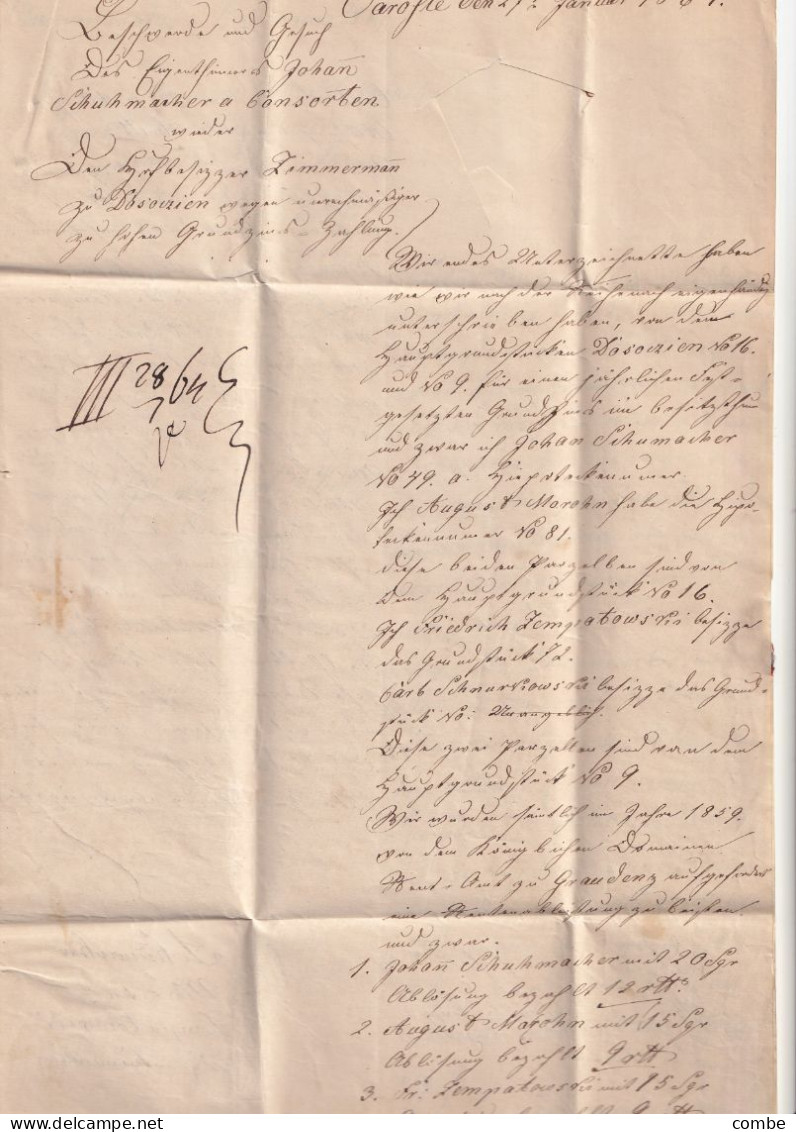 Sarosle den 27t Januar 1864.
Beschwerde und Gesuch
Des Eigenthümers Johan̄
Schuhmacher a Consorten
wieder
Den Hofbesizzer Zimmerman̄
zu Dosoczien wegen unrechmäßiger
zu hohen Grundzins-Zahlung.
Wir endes Unterzeichnette haben
wie wir nach der Reihe nach eigenhändig
unterschrieben haben, von dem
Hauptgrundstücken Dosoczien No 16.
und No 9. für einen jährlichen Fest-
gesetzten Grundzins im besitzthum
und zwar ich Johan Schumacher
No 49. a. Hiepoteckenumer
Ich August Marohn habe die Hipo-
teckennumer No 81.
diese beiden Parzelben sind von
dem Hauptgrundstück No 16.
Ich Friedrich Zempatowski besizze
das Grundstück 72.
Carb Schnarkowski besizze das Grund-
stück No:
Diese zwei Parzellen sind van dem
Hauptgrundstück No 9.
Wir wurden sämtlich im Jahre 1859.
von dem Königlichen Domainen
Rent-Amt zu Graudenz aufgefordert
eine Rentenableistung zu leisten
und zwar.
1. Johan̄ Schuhmacher mit 20 Sgr
Ablösung bezahlt 12 rtt
2. August Marohn mit 15 Sgr
Ablösung bezahlt 9 rtt
3. Fri: Zempatowski mit 15 Sgr
III 28 64
combe